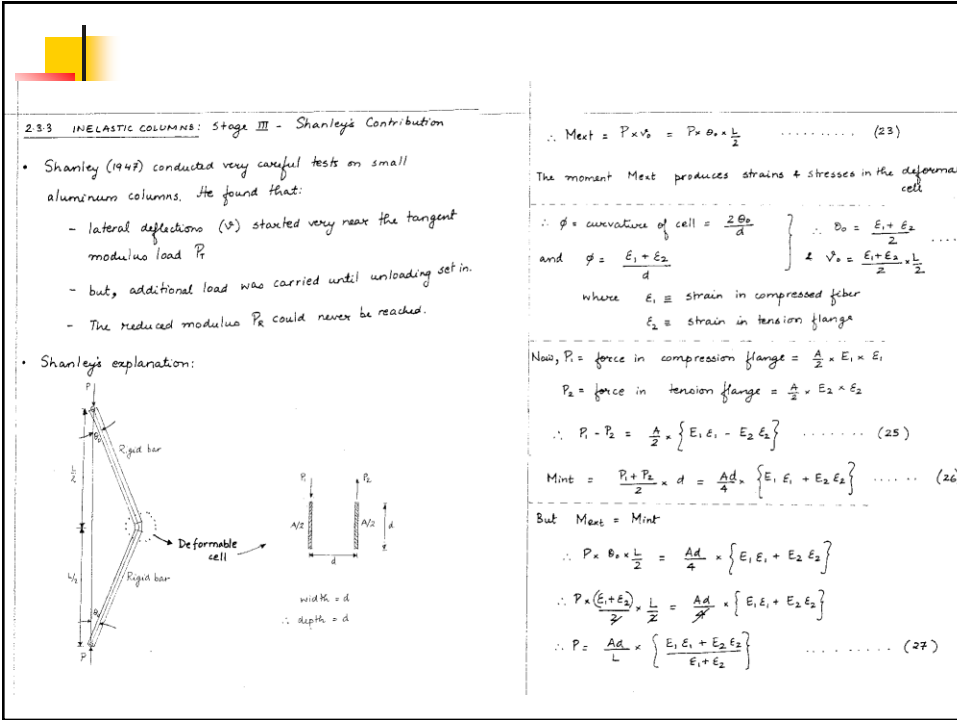 2.3.3 INELASTIC COLUMNS: Stage III - Shanley's Contribution
• Shanley (1947) conducted very careful tests on small
aluminum columns. He found that:
- lateral deflections (v) started very near the tangent
modulus load P_T
- but, additional load was carried until unloading set in.
- The reduced modulus P_R could never be reached.
• Shanley's explanation:
P
θ₀
Rigid bar
L/2
Deformable
cell
L/2
Rigid bar
θ₀
P
P₁ P₂
A/2 A/2 d
d
width = d
∴ depth = d
∴ Mext = P × v₀ = P × θ₀ × L/2 .......... (23)
The moment Mext produces strains & stresses in the deforma
cell
∴ φ = curvature of cell = 2θ₀/d } ∴ θ₀ = (ε₁ + ε₂)/2 ....
and φ = (ε₁ + ε₂)/d & v₀ = (ε₁+ε₂)/2 × L/2
where ε₁ ≡ strain in compressed fiber
ε₂ ≡ strain in tension flange
Now, P₁ = force in compression flange = A/2 × E₁ × ε₁
P₂ = force in tension flange = A/2 × E₂ × ε₂
∴ P₁ - P₂ = A/2 × {E₁ε₁ - E₂ε₂} ....... (25)
Mint = (P₁ + P₂)/2 × d = Ad/4 × {E₁ε₁ + E₂ε₂} ...... (26)
But Mext = Mint
∴ P × θ₀ × L/2 = Ad/4 × {E₁ε₁ + E₂ε₂}
∴ P × (ε₁+ε₂)/2 × L/2 = Ad/4 × {E₁ε₁ + E₂ε₂}
∴ P = Ad/L × {(E₁ε₁ + E₂ε₂)/(ε₁ + ε₂)} .......... (27)